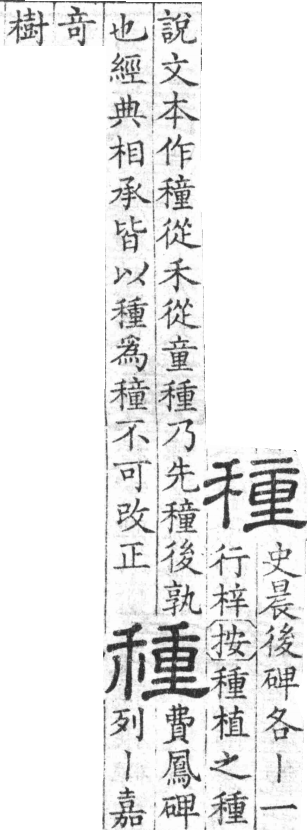 種
史晨後碑各丨一
行梓按種植之種
說文本作穜從禾從童種乃先穜後孰
也經典相承皆以種爲穜不可改正
種
費鳳碑
列丨嘉
竒
樹